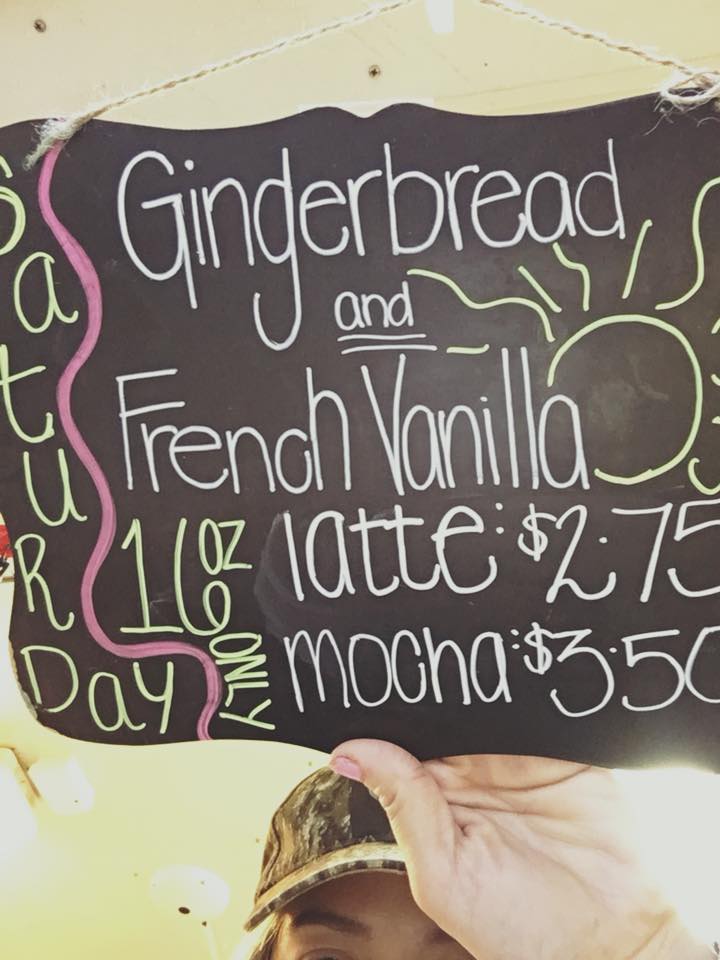 SatuRDay
Gingerbread
and
French Vanilla
16oz ONLY
latte: $2.75
mocha: $3.50